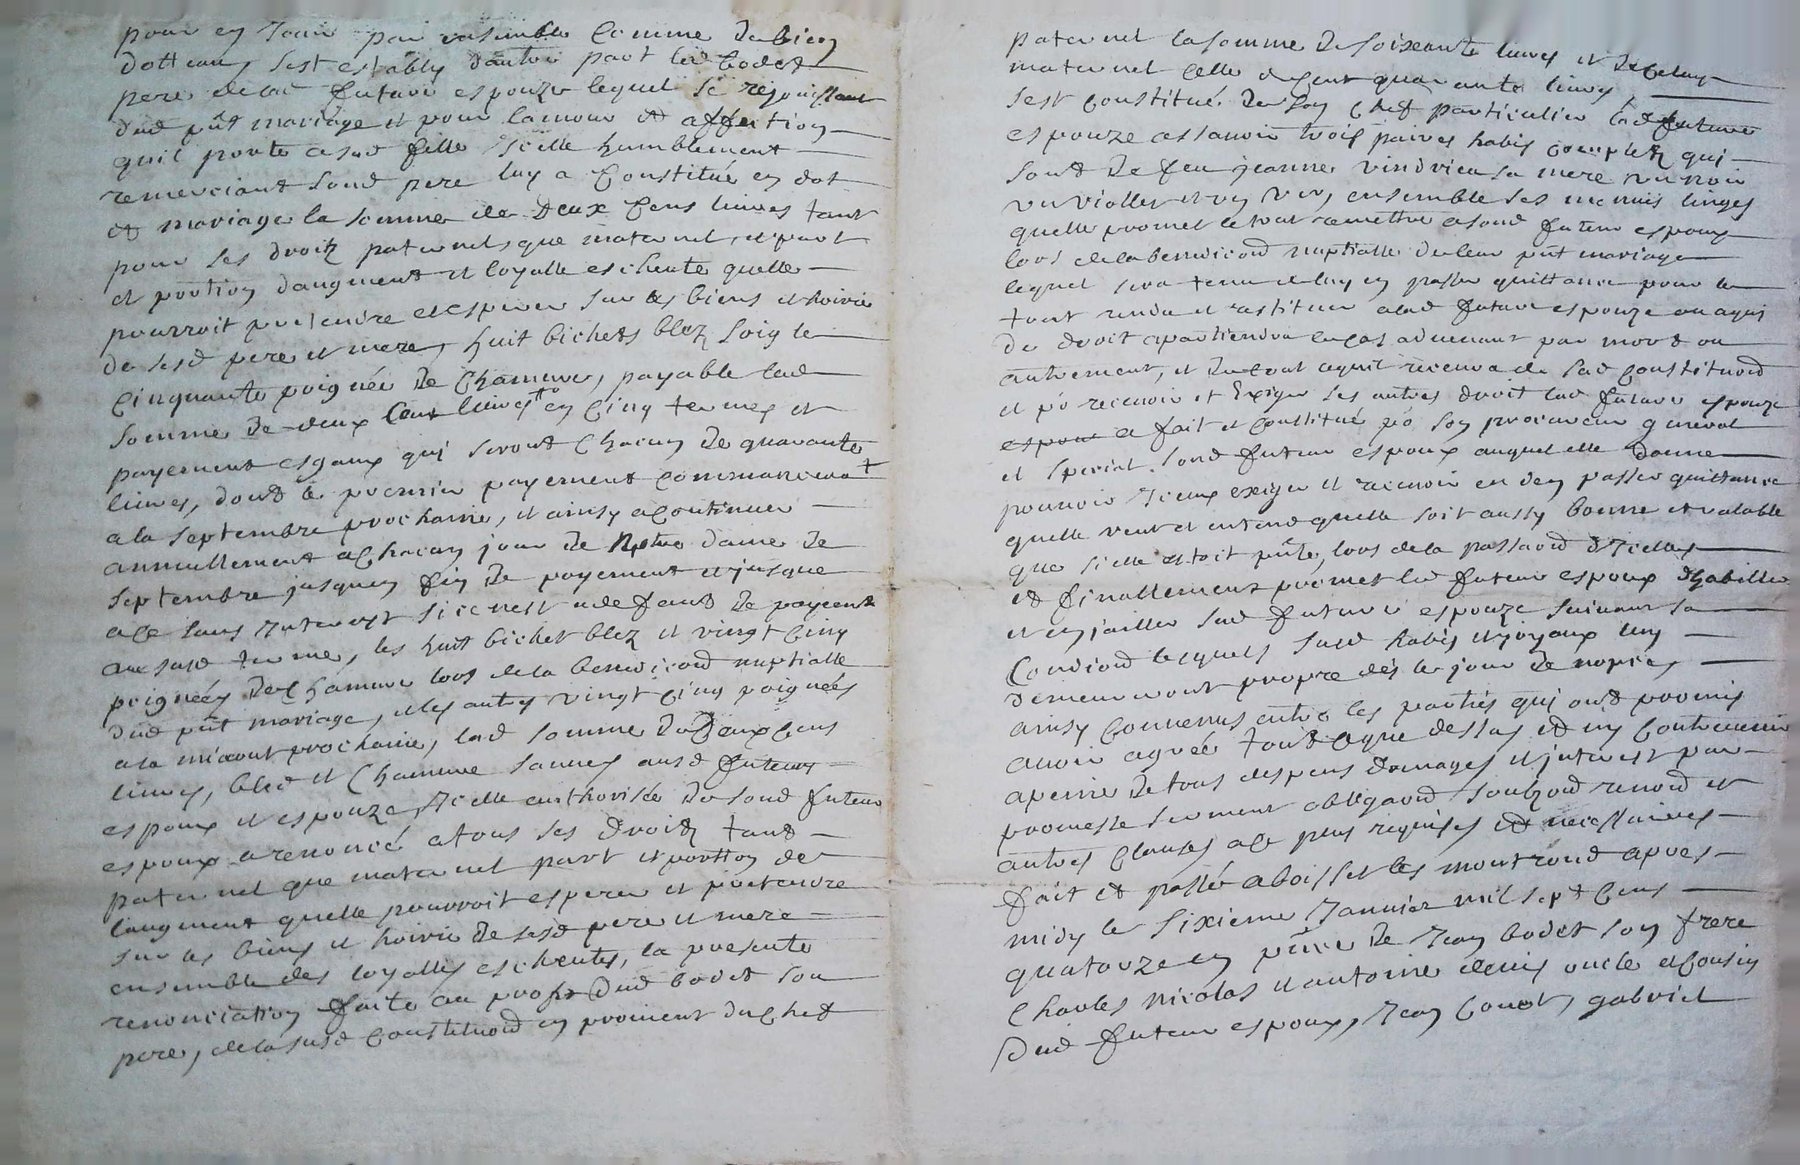 pour en Jouir par ensemble comme de bien
dotteaux, sest estably dautre part led bodet
pere de lad future espouze lequel se rejouissant
dud pnt mariage et pour lamour et affection
quil porte a sad fille Icelle humblement
remerciant sond pere luy a constitué en dot
et mariage la somme de deux cens livres tant
pour ses droitz paternels que maternel, et part
et portion daugment et loyalle escheute quelle
pourroit pretendre et esperer sur les biens et hoirie
de sesd pere et mere, huit bichets blez soig le
cinquante poignée de chamure, payable lad
somme de deux cens livres en cinq termes et
payements esgaux qui seront chacun de quarante
livres, dont le premier payement commancera
a la septembre prochaine, et ainsy a continuer
annuellement a chacun jour de notre dame de
septembre jusquen fin de payement et jusque
a ce sans Interest si ce nest a defaut de payement
au susd terme, les huit bichet blez et vingt cinq
poignées de chamure lors de la benediction nuptialle
dud pnt mariage, et les autres vingt cinq poignées
a la miaout prochaine, lad somme de deux cens
livres, bled et chamure sauves ausd futeurs
espoux et espouze, Icelle authorisée de sond futeur
espoux a renoncé a tous ses droitz tant
paternel que maternel part et portion de
laugment quelle pourroit esperer et pretendre
sur les biens et hoirie de sesd pere et mere
ensemble des loyalles escheutes, la presente
renonciation faite au profit dud bodet son
pere, de la susd constitution en provient du chef
paternel la somme de soixante livres et de celuy
maternel celle de cent quarante livres,
sest constitué de son chef particulier lad future
espouze assavoir trois paires habis complets qui
sont de feu jeanne vindrieu sa mere un noir
un viollet et un vert, ensemble ses menus linges
quelle promet le tout remettre a sond futeur espoux
lors de la benediction nuptialle de leur pnt mariage
lequel sera tenu de luy en passer quittance pour le
tout rendre et restituer a lad future espouze ou a qui
de droit apartiendra le cas advenant par mort ou
autrement, et de tout ce quil recevra de sad constitution
et po recevoir et Exiger ses autres droit lad future espouze
a fait et constitué po son procureur general
et special sond futeur espoux auquel elle donne
pouvoir Iceux exiger et recevoir en den passer quittance
quelle veut et entend quelle soit aussy bonne et valable
que si elle estoit pnte, lors de la passation dIcelles
et finallement promet led futeur espoux dhabiller
et enjailler sad future espouze suivant sa
condition lesquels susd habis et joyaux luy
demeureront propre dès le jour de nopces
ainsy convenus entre les parties qui ont promis
avoir agreé tout ce que dessus et ny contrevenir
a peine de tous despens domages et interest par
promesse serment obligaond soubzond renond et
autres clauses a ce plus requises et necessaires
fait et passé a boisset les montrond apres
midy le sixieme Janvier mil sept cens
quatorze en pnce de Jean bodet son frere
charles nicolas et antoine denis oncle et cousin
dud futeur espoux, Jean couet, gabriel